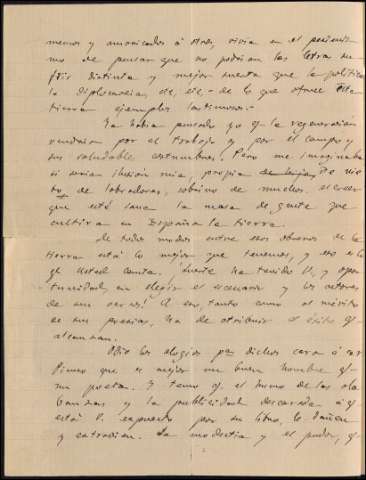 menos y amoricados á otros, vivia en el pesimis-
mo de pensar que no podrian las letras su-
frir distinta y mejor suerte que la politica
la diplomacia, etc, etc - de lo que ofrece esta
tierra ejemplos lastimosos.-
Ya habia pensado yo q. la regeneración
vendria por el trabajo y por el campo y
sus saludables costumbres. Pero me imaginaba
si seria ilusión mia, propia de nie-
to de labradores, sobrino de muchos, el creer
que está sana la masa de gente que
cultiva en España la tierra.
De todos modos entre esos obreros de la
tierra está lo mejor que tenemos, y eso es lo
q. usted canta. Suerte ha tenido V. y opor-
tunidad, en elegir el escenario y los actores
de sus versos. A eso, tanto como al mérito
de sus poesias, ha de atribuir el éxito q.
alcanzan.
Odio los elogios pa. dichos cara á cara
Pienso que es mejor un buen hombre q.
un poeta. Y temo q. el humo de las ala-
banzas y la publicidad descarada á q.
está V. expuesto por su libro, lo dañen
y extravien. La modestia y el pudor, q.